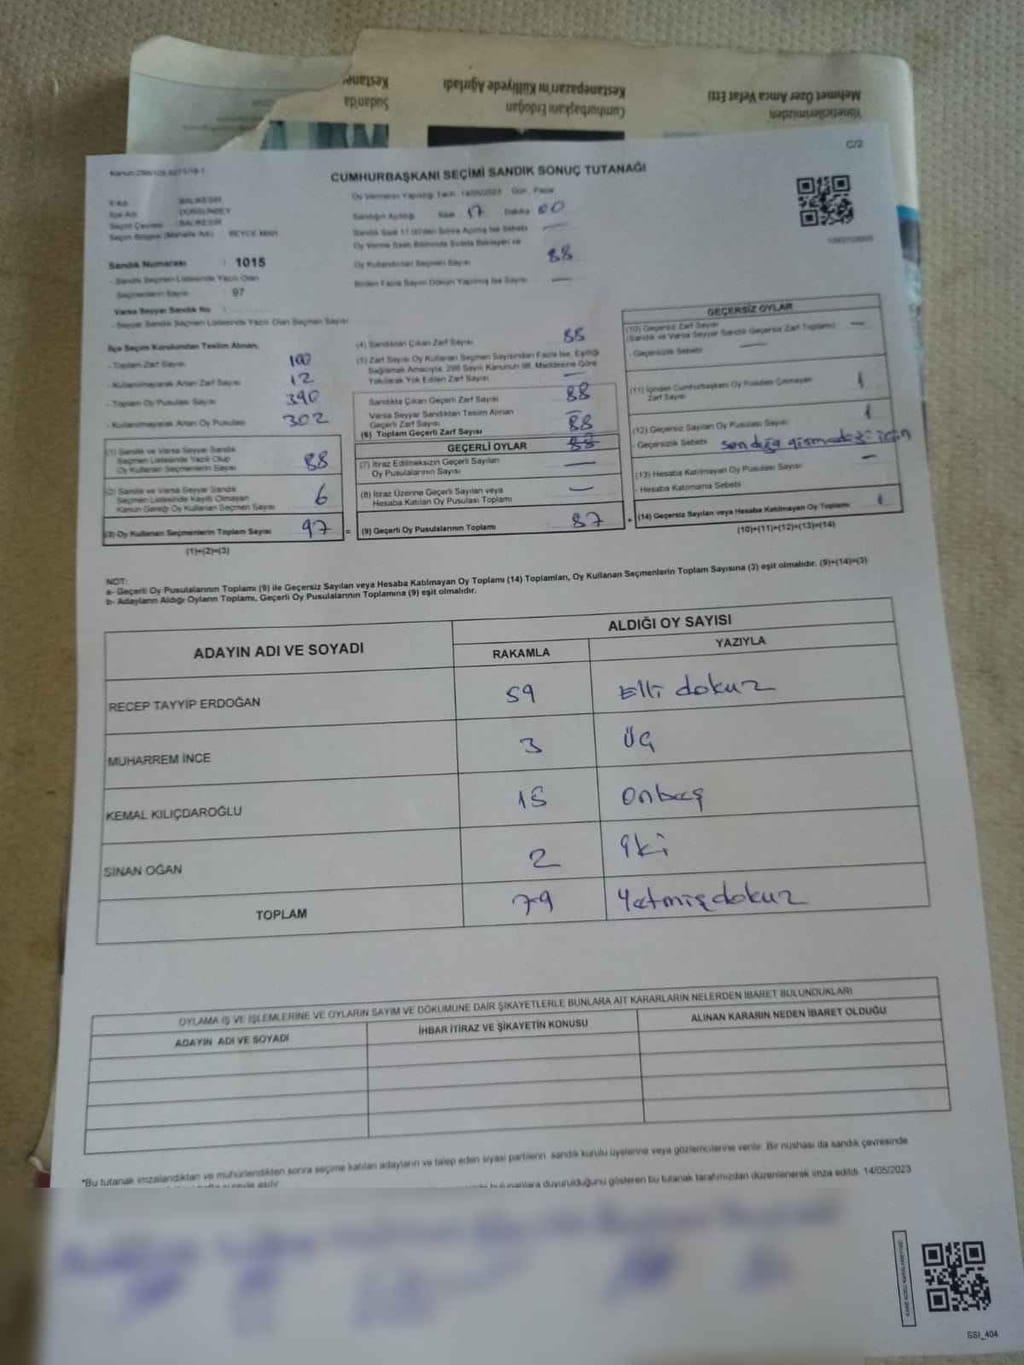 Yöneticilerimizden
Mehmet Özer Amca Vefat Etti
Cumhurbaşkanı Erdoğan
Kestanepazarı'nı Külliyede Ağırladı
Sudanda
C/2
CUMHURBAŞKANI SEÇİMİ SANDIK SONUÇ TUTANAĞI
Oy Vermenin Yapıldığı Tarih : 14/05/2023 Gün : Pazar
İl Adı : BALIKESİR
İlçe Adı : DURSUNBEY
Seçim Çevresi : BALIKESİR
Seçim Bölgesi (Mahalle /Köy) : BEYCE MAH.
Sandığın Açıldığı Saat 17 Dakika 00
Sandık Saat 17.00'den Sonra Açılmış İse Sebebi —
Oy Verme Saati Bitiminde Sırada Bekleyen ve
Oy Kullandırılan Seçmen Sayısı 88
Birden Fazla Sayım Döküm Yapılmış İse Sayısı —
Sandık Numarası : 1015
- Sandık Seçmen Listesinde Yazılı Olan
Seçmenlerin Sayısı : 97
Varsa Seyyar Sandık No :
- Seyyar Sandık Seçmen Listesinde Yazılı Olan Seçmen Sayısı
İlçe Seçim Kurulundan Teslim Alınan;
- Toplam Zarf Sayısı 100
- Kullanılmayarak Artan Zarf Sayısı 12
- Toplam Oy Pusulası Sayısı 390
- Kullanılmayarak Artan Oy Pusulası 302
(1) Sandık ve Varsa Seyyar Sandık
Seçmen Listesinde Yazılı Olup
Oy Kullanan Seçmenlerin Sayısı 88
(2) Sandık ve Varsa Seyyar Sandık
Seçmen Listesinde Kayıtlı Olmayan
Kanun Gereği Oy Kullanan Seçmen Sayısı 6
(3) Oy Kullanan Seçmenlerin Toplam Sayısı 97 =
(1)+(2)=(3)
(4) Sandıktan Çıkan Zarf Sayısı 88
(5) Zarf Sayısı Oy Kullanan Seçmen Sayısından Fazla İse, Eşitliği
Sağlamak Amacıyla, 298 Sayılı Kanunun 98. Maddesine Göre
Yakılarak Yok Edilen Zarf Sayısı —
Sandıkta Çıkan Geçerli Zarf Sayısı 88
Varsa Seyyar Sandıktan Teslim Alınan
Geçerli Zarf Sayısı —
(6) Toplam Geçerli Zarf Sayısı 88
GEÇERLİ OYLAR 88
(7) İtiraz Edilmeksizin Geçerli Sayılan
Oy Pusulalarının Sayısı —
(8) İtiraz Üzerine Geçerli Sayılan veya
Hesaba Katılan Oy Pusulası Toplamı —
(9) Geçerli Oy Pusulalarının Toplamı 87 +
GEÇERSİZ OYLAR
(10) Geçersiz Zarf Sayısı
(Sandık ve Varsa Seyyar Sandık Geçersiz Zarf Toplamı) —
- Geçersizlik Sebebi —
(11) İçinden Cumhurbaşkanı Oy Pusulası Çıkmayan
Zarf Sayısı 1
(12) Geçersiz Sayılan Oy Pusulası Sayısı 1
- Geçersizlik Sebebi
(13) Hesaba Katılmayan Oy Pusulası Sayısı —
- Hesaba Katılmama Sebebi
(14) Geçersiz Sayılan veya Hesaba Katılmayan Oy Toplamı 1
(10)+(11)+(12)+(13)=(14)
NOT:
a- Geçerli Oy Pusulalarının Toplamı (9) ile Geçersiz Sayılan veya Hesaba Katılmayan Oy Toplamı (14) Toplamları, Oy Kullanan Seçmenlerin Toplam Sayısına (3) eşit olmalıdır. (9)+(14)=(3)
b- Adayların Aldığı Oyların Toplamı, Geçerli Oy Pusulalarının Toplamına (9) eşit olmalıdır.
ADAYIN ADI VE SOYADI
ALDIĞI OY SAYISI
RAKAMLA YAZIYLA
RECEP TAYYİP ERDOĞAN 59 Elli dokuz
MUHARREM İNCE 3 üç
KEMAL KILIÇDAROĞLU 15 Onbeş
SİNAN OĞAN 2 iki
TOPLAM 79 Yetmişdokuz
OYLAMA İŞ VE İŞLEMLERİNE VE OYLARIN SAYIM VE DÖKÜMÜNE DAİR ŞİKAYETLERLE BUNLARA AİT KARARLARIN NELERDEN İBARET BULUNDUKLARI
ADAYIN ADI VE SOYADI İHBAR İTİRAZ VE ŞİKAYETİN KONUSU ALINAN KARARIN NEDEN İBARET OLDUĞU
*Bu tutanak imzalandıktan ve mühürlendikten sonra seçime katılan adayların ve talep eden siyasi partilerin sandık kurulu üyelerine veya gözlemcilerine verilir. Bir nüshası da sandık çevresinde
bulunanlara duyurulduğunu gösteren bu tutanak tarafımızdan düzenlenerek imza edildi. 14/05/2023
SSI_404